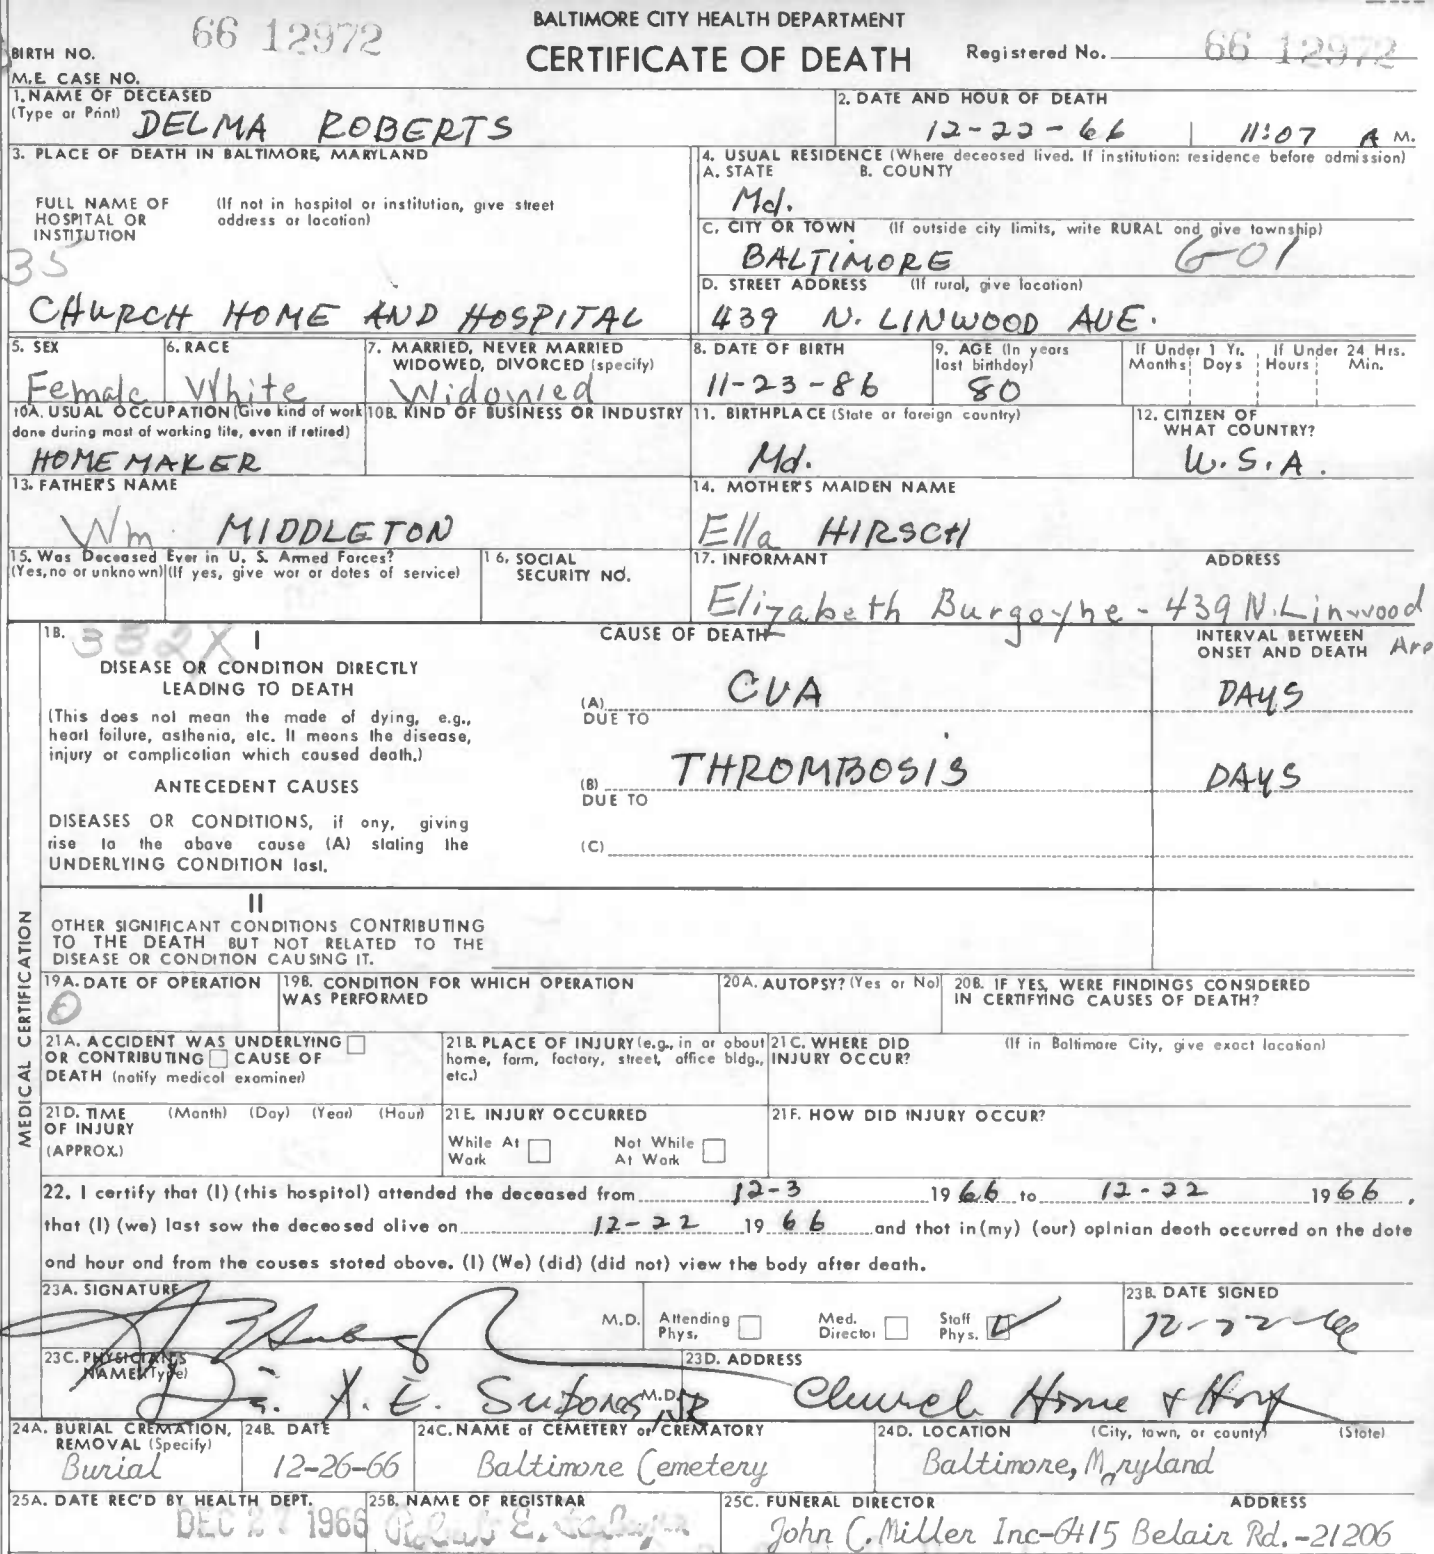 BALTIMORE CITY HEALTH DEPARTMENT
66 12972
CERTIFICATE OF DEATH
BIRTH NO.
Registered No. 66 12972
M.E. CASE NO.
1. NAME OF DECEASED
(Type or Print) DELMA ROBERTS
2. DATE AND HOUR OF DEATH
12-22-66 11:07 A M.
3. PLACE OF DEATH IN BALTIMORE, MARYLAND
FULL NAME OF HOSPITAL OR INSTITUTION
(If not in hospital or institution, give street address or location)
35
CHURCH HOME AND HOSPITAL
4. USUAL RESIDENCE (Where deceased lived. If institution: residence before admission)
A. STATE B. COUNTY
Md.
C. CITY OR TOWN (If outside city limits, write RURAL and give township)
BALTIMORE 6-01
D. STREET ADDRESS (If rural, give location)
439 N. LINWOOD AVE.
5. SEX
Female
6. RACE
White
7. MARRIED, NEVER MARRIED
WIDOWED, DIVORCED (specify)
Widowed
8. DATE OF BIRTH
11-23-86
9. AGE (In years
last birthday)
80
If Under 1 Yr. If Under 24 Hrs.
Months Days Hours Min.
10A. USUAL OCCUPATION (Give kind of work
done during most of working life, even if retired)
HOMEMAKER
10B. KIND OF BUSINESS OR INDUSTRY
11. BIRTHPLACE (State or foreign country)
Md.
12. CITIZEN OF
WHAT COUNTRY?
U.S.A.
13. FATHER'S NAME
Wm. MIDDLETON
14. MOTHER'S MAIDEN NAME
Ella HIRSCH
15. Was Deceased Ever in U. S. Armed Forces?
(Yes, no or unknown) (If yes, give war or dates of service)
16. SOCIAL
SECURITY NO.
17. INFORMANT ADDRESS
Elizabeth Burgoyne - 439 N. Linwood
Ave
MEDICAL CERTIFICATION
18. 332X I
CAUSE OF DEATH
INTERVAL BETWEEN
ONSET AND DEATH
DISEASE OR CONDITION DIRECTLY
LEADING TO DEATH
(This does not mean the mode of dying, e.g.,
heart failure, asthenia, etc. It means the disease,
injury or complication which caused death.)
(A) CVA DAYS
DUE TO
ANTECEDENT CAUSES
(B) THROMBOSIS DAYS
DUE TO
DISEASES OR CONDITIONS, if any, giving
rise to the above cause (A) stating the
UNDERLYING CONDITION last.
(C)
II
OTHER SIGNIFICANT CONDITIONS CONTRIBUTING
TO THE DEATH BUT NOT RELATED TO THE
DISEASE OR CONDITION CAUSING IT.
19A. DATE OF OPERATION
0
19B. CONDITION FOR WHICH OPERATION
WAS PERFORMED
20A. AUTOPSY? (Yes or No)
20B. IF YES, WERE FINDINGS CONSIDERED
IN CERTIFYING CAUSES OF DEATH?
21A. ACCIDENT WAS UNDERLYING
OR CONTRIBUTING CAUSE OF
DEATH (notify medical examiner)
21B. PLACE OF INJURY (e.g., in or about
home, farm, factory, street, office bldg.,
etc.)
21C. WHERE DID
INJURY OCCUR?
(If in Baltimore City, give exact location)
21D. TIME (Month) (Day) (Year) (Hour)
OF INJURY
(APPROX.)
21E. INJURY OCCURRED
While At Work
Not While At Work
21F. HOW DID INJURY OCCUR?
22. I certify that (I) (this hospital) attended the deceased from 12-3 1966 to 12-22 1966,
that (I) (we) last saw the deceased alive on 12-22 1966 and that in (my) (our) opinion death occurred on the date
and hour and from the causes stated above. (I) (We) (did) (did not) view the body after death.
23A. SIGNATURE
M.D.
Attending Phys.
Med. Director
Staff Phys.
23B. DATE SIGNED
12-22-66
23C. PHYSICIAN'S
NAME (Type)
Dr. M.D. JR
23D. ADDRESS
Church Home & Hosp
24A. BURIAL CREMATION,
REMOVAL (Specify)
Burial
24B. DATE
12-26-66
24C. NAME of CEMETERY or CREMATORY
Baltimore Cemetery
24D. LOCATION (City, town, or county) (State)
Baltimore, Maryland
25A. DATE REC'D BY HEALTH DEPT.
DEC 27 1966
25B. NAME OF REGISTRAR
25C. FUNERAL DIRECTOR ADDRESS
John C. Miller Inc-6415 Belair Rd.-21206